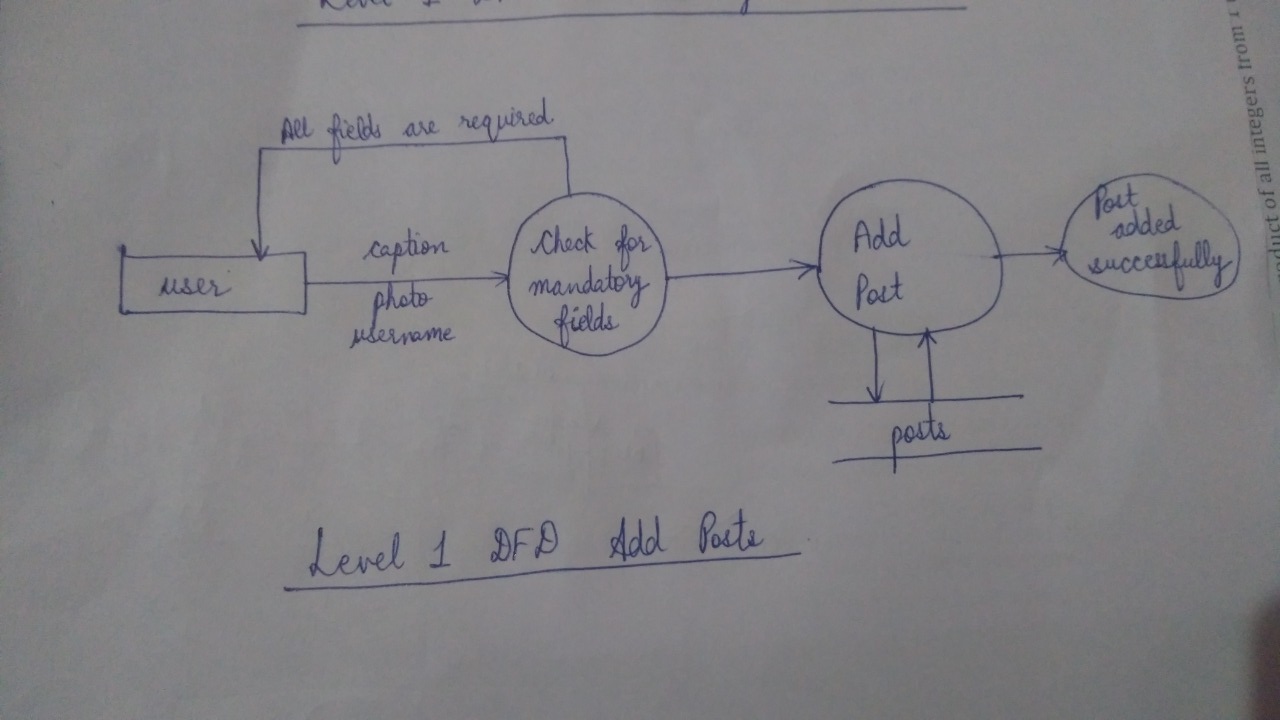 Level
All fields are required
caption
user
photo
username
Check for
mandatory
fields
Add
Post
Post
added
successfully
posts
Level 1 DFD Add Posts
of all integers from